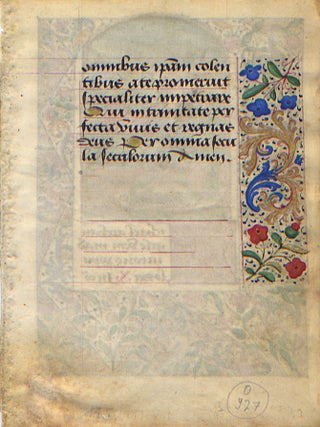 omnibus ipam colen
tibus a te promeruit
specialiter impetrare
Qui in trinitate per
fecta vivis et regnas
deus Per omnia secu
la seculorum Amen.
0
927